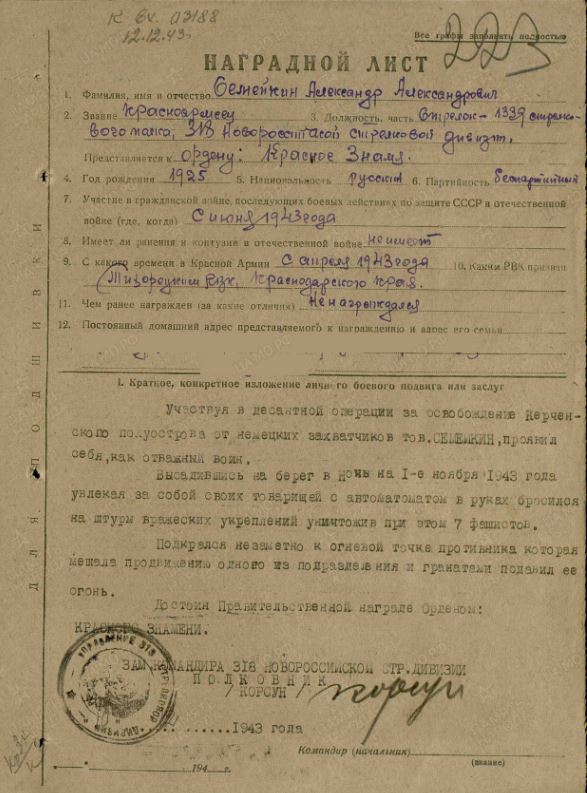 К вх. 03188
12.12.43
Все графы заполнять полностью
223
НАГРАДНОЙ ЛИСТ
1. Фамилия, имя и отчество Семейкин Александр Александрович
2. Звание Красноармеец 3. Должность, часть Стрелок - 1339 стрелко-
вого полка, 318 Новороссийской стрелковой дивиз.
Представляется к ордену: Красное Знамя.
4. Год рождения 1925 5. Национальность русский 6. Партийность беспартийный
7. Участие в гражданской войне, последующих боевых действиях по защите СССР и отечественной
войне (где, когда) С июня 1943 года
8. Имеет ли ранения и контузии в отечественной войне не имеет
9. С какого времени в Красной Армии С апреля 1943 года 10. Каким РВК призван
Тихорецким РВК, Краснодарского края.
11. Чем ранее награжден (за какие отличия) Не награждался
12. Постоянный домашний адрес представляемого к награждению и адрес его семьи
I. Краткое, конкретное изложение личного боевого подвига или заслуг
Участвуя в десантной операции за освобождение Керчен-
ского полуострова от немецких захватчиков тов.СЕМЕЙКИН,проявил
себя,как отважный воин.
Высадившись на берег в Ночь на I-е ноября 1943 года
увлекая за собой своих товарищей с автоматоматом в руках бросился
на штурм вражеских укреплений уничтожив при этом 7 фашистов.
Подкрался незаметно к огневой точке противника которая
мешала продвижению одного из подразделения и гранатами подавил ее
огонь.
Достоин Правительственной награде Орденом:
КРАСНОГО ЗНАМЕНИ.
ЗАМ.КОМАНДИРА 318 НОВОРОССИЙСКОЙ СТР.ДИВИЗИИ
ПОЛКОВНИК
/КОРСУН/ Корсун
1943 года
Командир (начальник)
(звание)
194 г.
ДЛЯ ПОДШИВКИ
УПРАВЛЕНИЕ 318 СТРЕЛКОВОЙ ДИВИЗИИ